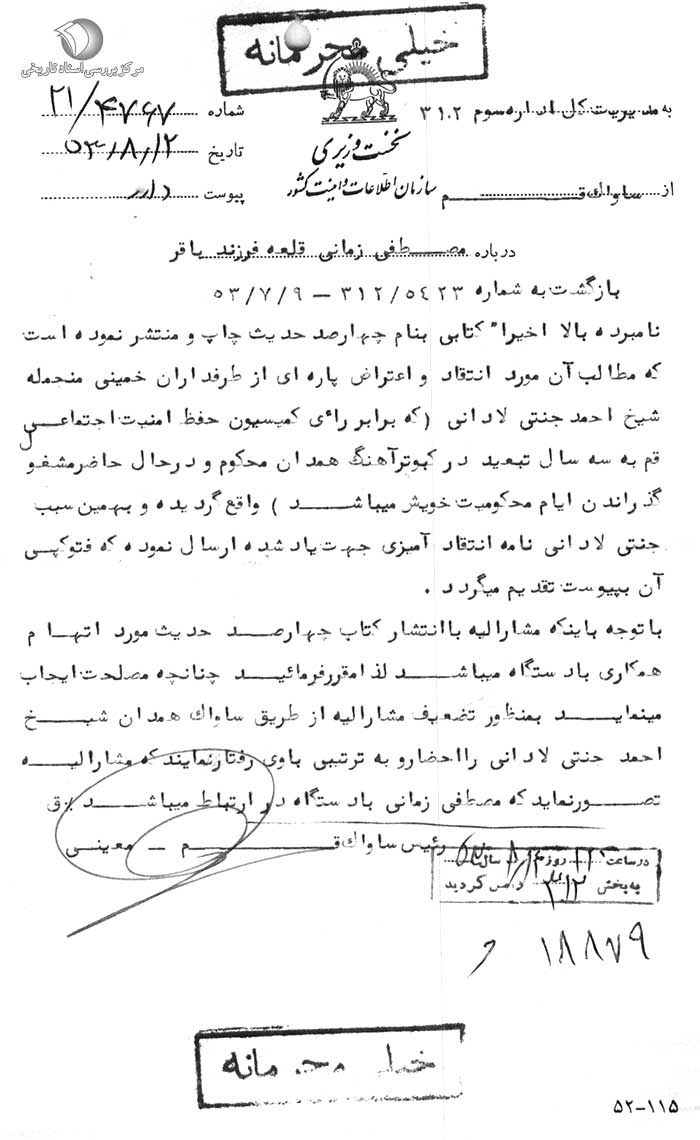 خیلی محرمانه
مرکز بررسی اسناد تاریخی
به مدیریت کل اداره سوم ۳۱۲
نخست وزیری
شماره ۲۱/۴۷۶۷
تاریخ ۵۳/۸/۲
از ساواک قم
سازمان اطلاعات و امنیت کشور
پیوست دارد
درباره مصطفی زمانی قلعه فرزند باقر
بازگشت به شماره ۳۱۲/۵۴۲۳ – ۵۳/۷/۹
نامبرده بالا اخیراً کتابی بنام چهارصد حدیث چاپ و منتشر نموده است
که مطالب آن مورد انتقاد و اعتراض پاره ای از طرفداران خمینی منجمله
شیخ احمد جنتی لادانی (که برابر رأی کمیسیون حفظ امنیت اجتماعی
قم به سه سال تبعید در کبوترآهنگ همدان محکوم و درحال حاضر مشغول
گذراندن ایام محکومیت خویش میباشد) واقع گردیده و بهمین سبب
جنتی لادانی نامه انتقاد آمیزی جهت یاد شده ارسال نموده که فتوکپی
آن بپیوست تقدیم میگردد.
با توجه باینکه مشارالیه با انتشار کتاب چهارصد حدیث مورد اتهام
همکاری با دستگاه میباشد لذا مقرر فرمائید چنانچه مصلحت ایجاب
مینماید بمنظور تضعیف مشارالیه از طریق ساواک همدان شیخ
احمد جنتی لادانی را احضار و به ترتیبی باوی رفتار نمایند که مشارالیه
تصور نماید که مصطفی زمانی با دستگاه در ارتباط میباشد
رئیس ساواک قم – معینی
در ساعت روز سال
به بخش ۳۱۲ واصل گردید
۱۸۸۷۹
خیلی محرمانه
۵۲–۱۱۵